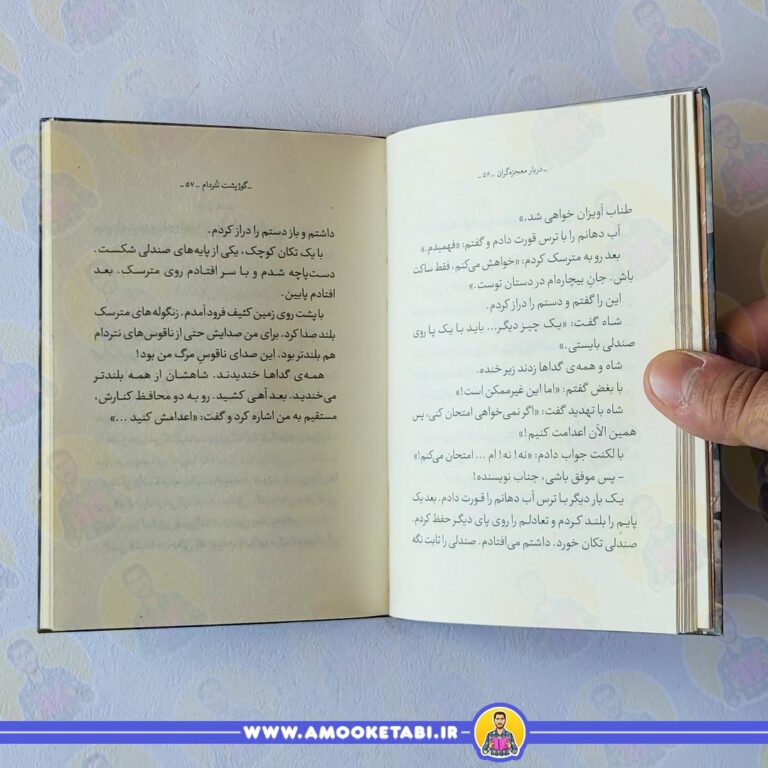 ـ دربار معجزه‌گران ـ ۵۶ ـ
طناب آویزان خواهی شد.»
آب دهانم را با ترس قورت دادم و گفتم: «فهمیدم.»
بعد رو به مترسک کردم: «خواهش می‌کنم. فقط ساکت
باش. جانِ بیچاره‌ام در دستان توست.»
این را گفتم و دستم را دراز کردم.
شاه گفت: «یک چیز دیگر... باید با یک پا روی
صندلی بایستی.»
شاه و همه‌ی گداها زدند زیر خنده.
با بغض گفتم: «اما این غیرممکن است!»
شاه با تهدید گفت: «اگر نمی‌خواهی امتحان کنی، پس
همین الآن اعدامت کنیم!»
با لکنت جواب دادم: «نه! نه! ام ... امتحان می‌کنم!»
- پس موفق باشی، جناب نویسنده!
یک بار دیگر با ترس آب دهانم را قورت دادم. بعد یک
پایم را بلند کردم و تعادلم را روی پای دیگر حفظ کردم.
صندلی تکان خورد. داشتم می‌افتادم. صندلی را ثابت نگه
ـ گوژپشت نتردام ـ ۵۷ ـ
داشتم و باز دستم را دراز کردم.
با یک تکان کوچک، یکی از پایه‌های صندلی شکست.
دست‌پاچه شدم و با سر افتادم روی مترسک. بعد
افتادم پایین.
با پشت روی زمین کثیف فرود آمدم. زنگوله‌های مترسک
بلند صدا کرد. برای من صدایش حتی از ناقوس‌های نتردام
هم بلندتر بود. این صدای ناقوسِ مرگ من بود!
همه‌ی گداها خندیدند. شاهشان از همه بلندتر
می‌خندید. بعد آهی کشید. رو به دو محافظ کنارش،
مستقیم به من اشاره کرد و گفت: «اعدامش کنید ...»
WWW.AMOOKETABI.IR